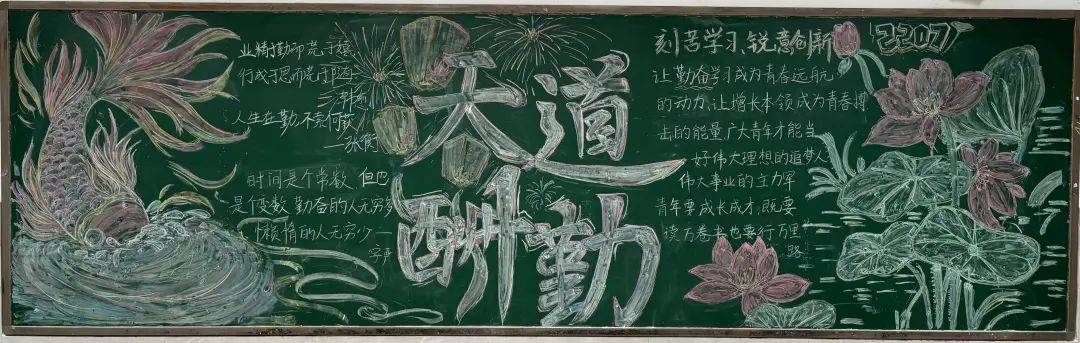 业精勤而荒于嬉
行成于思而荒于随
韩愈
人生在勤不索何获
—张衡
时间是个常数 但也
是个变数 勤奋的人无穷多
懒惰的人无穷少—
字严
天道
酬勤
刻苦学习 锐意创新
2207
让勤奋学习成为青春远航
的动力,让增长本领成为青春搏
击的能量广大青年才能当
好伟大理想的追梦人
伟大事业的主力军
青年要成长成才,既要
读万卷书也要行万里
路